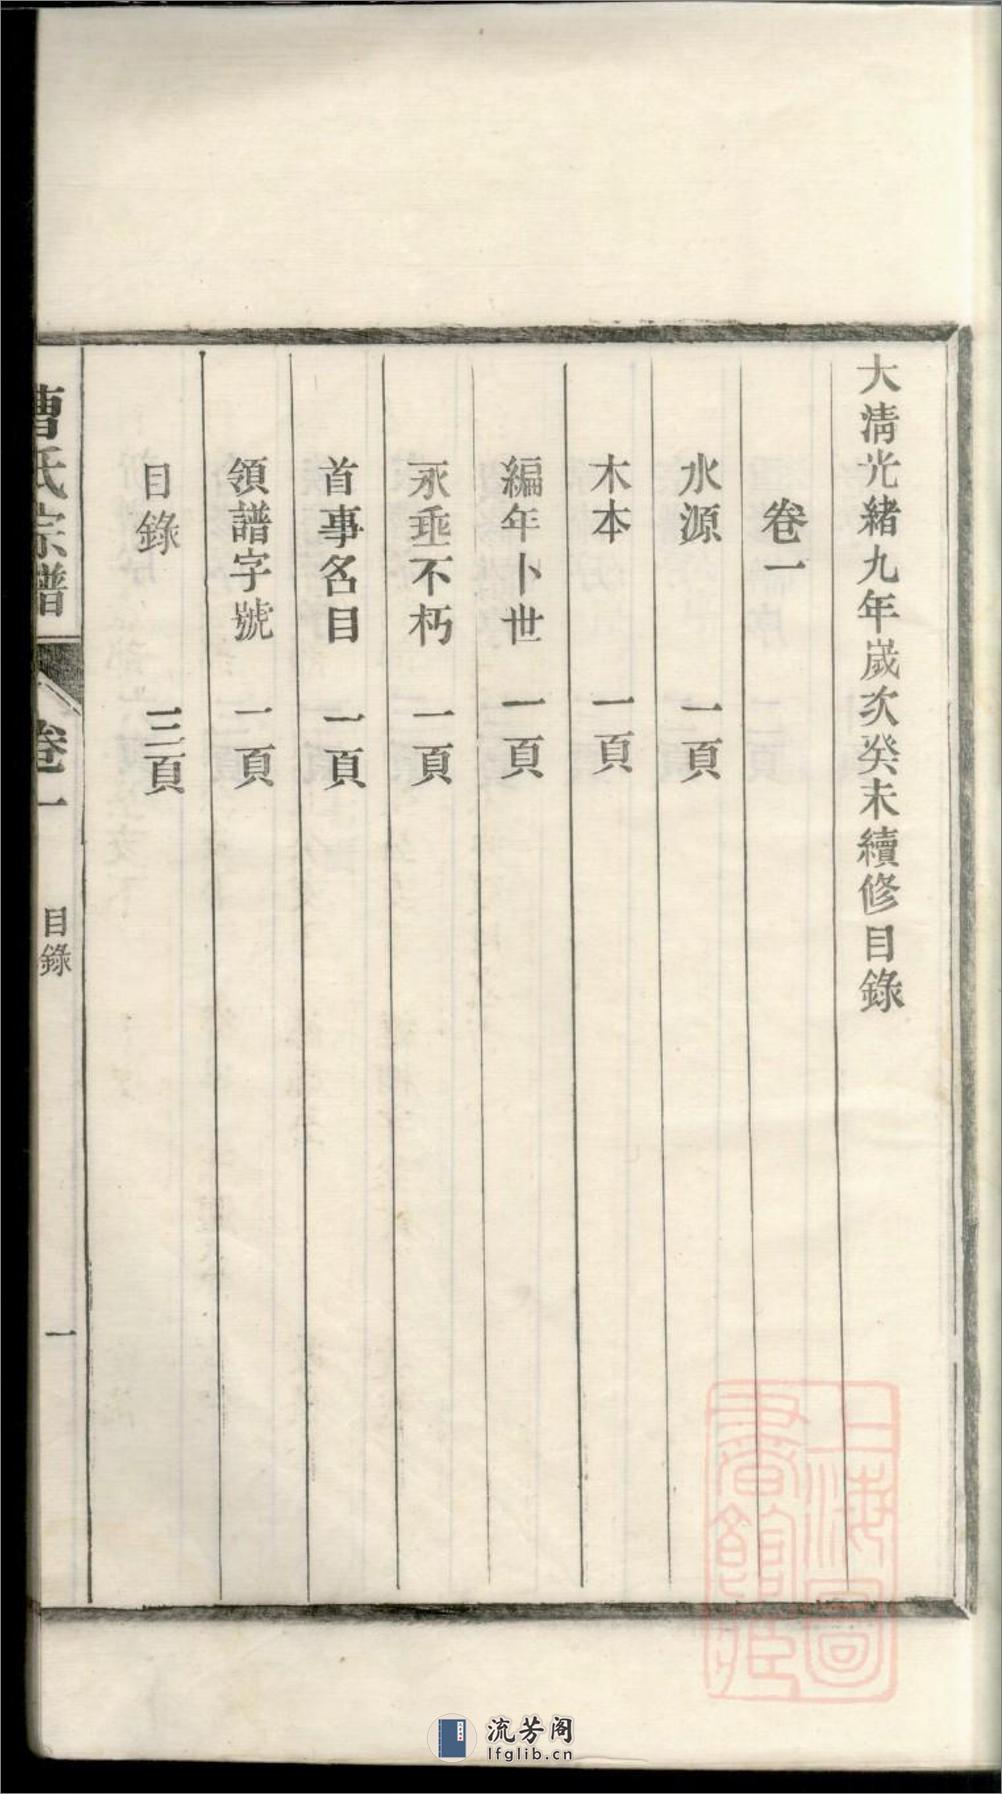 大清光緒九年歲次癸未續修目錄
卷一
水源 一頁
木本 一頁
編年卜世 一頁
永垂不朽 一頁
首事名目 一頁
領譜字號 一頁
目錄 三頁
曹氏宗譜 卷一 目錄 一
上海圖書館藏
流芳阁
lfglib.cn